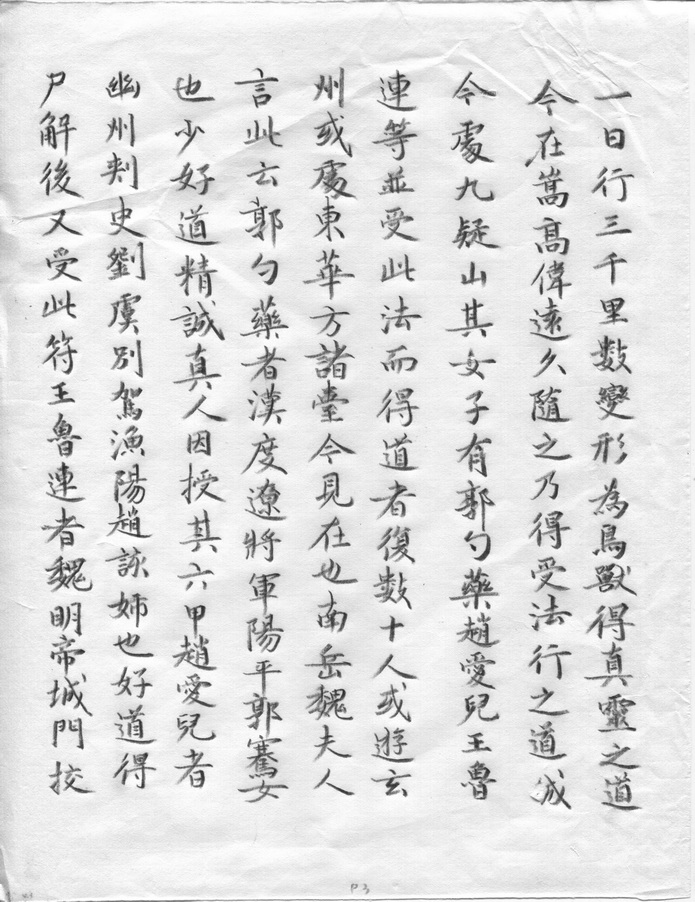 一日行三千里數變形為鳥獸得真靈之道
今在嵩高偉遠久隨之乃得受法行之道成
今處九疑山其女子有郭勺藥趙愛兒王魯
連等並受此法而得道者復數十人或遊玄
州或處東華方諸臺今見在也南岳魏夫人
言此云郭勺藥者漢度遼將軍陽平郭騫女
也少好道精誠真人因授其六甲趙愛兒者
幽州刺史劉虞別駕漁陽趙該姊也好道得
尸解後又受此符王魯連者魏明帝城門挍
P3